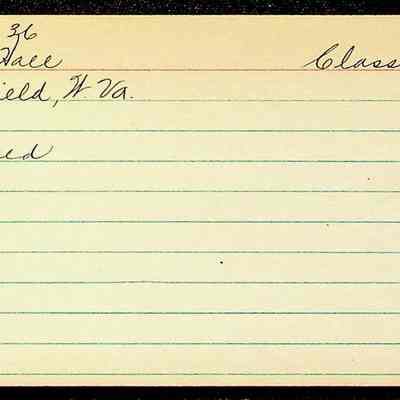 36
Hall Class
ield, W. Va.
ed